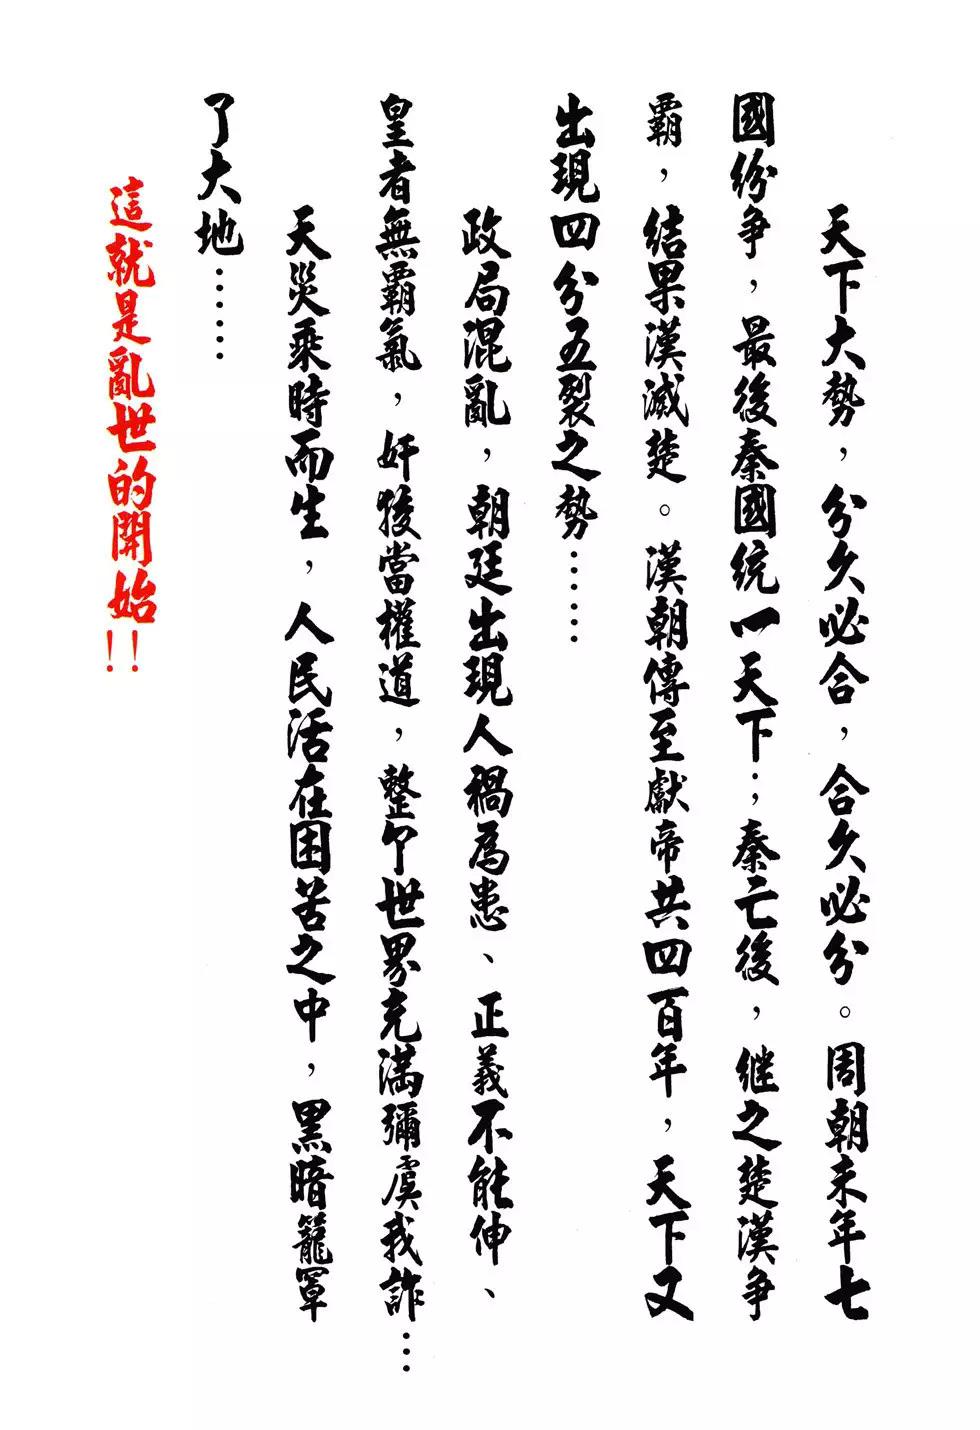 天下大勢，分久必合，合久必分。周朝末年七
國紛爭，最後秦國統一天下；秦亡後，継之楚漢爭
霸，結果漢滅楚。漢朝傳至獻帝共四百年，天下又
出現四分五裂之勢……
政局混亂，朝廷出現人禍為患、正義不能伸、
皇者無霸氣，奸狻當權道，整个世界充滿彌虞我詐…
天災乘時而生，人民活在困苦之中，黑暗籠罩
了大地……
這就是亂世的開始!!